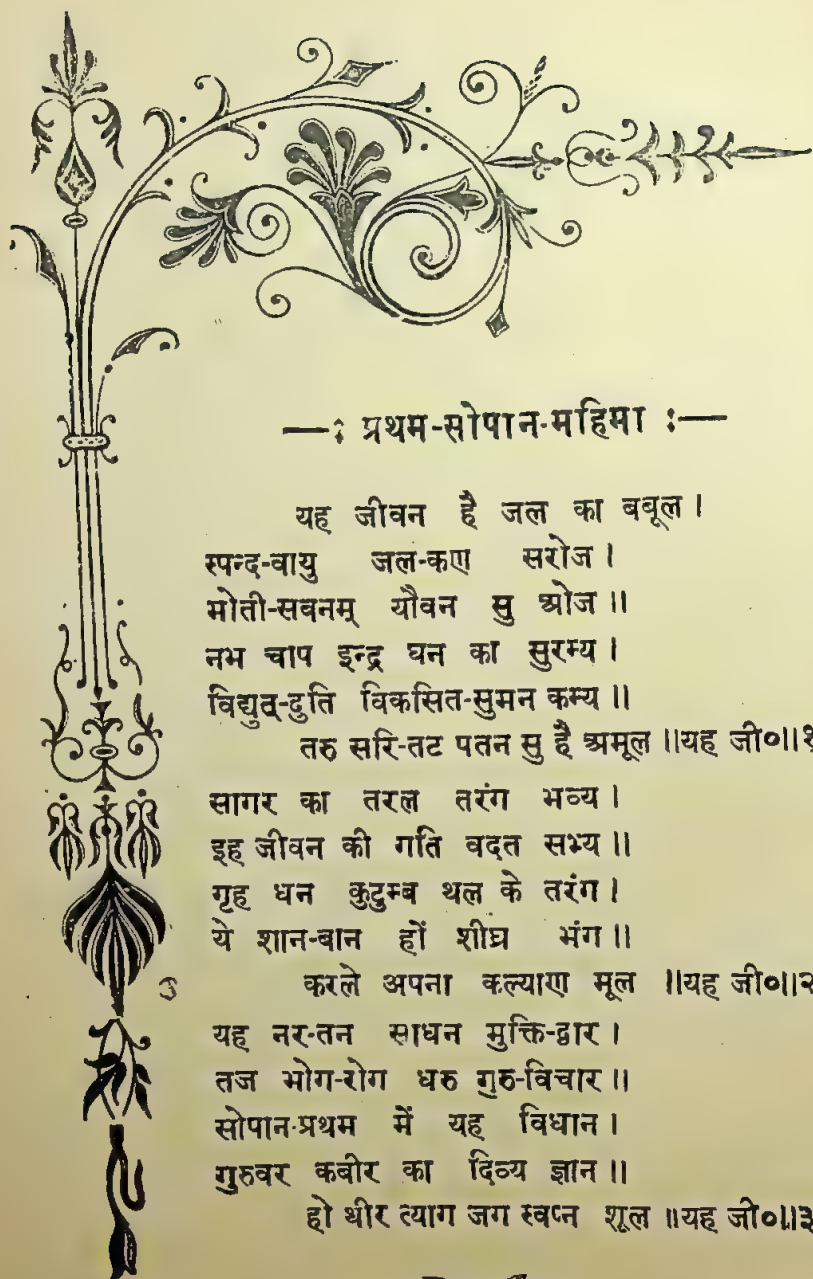 —: प्रथम-सोपान-महिमा :—
यह जीवन है जल का बबूल ।
स्पन्द-वायु जल-कण सरोज ।
मोती-सवनम् यौवन सु ओज ॥
नभ चाप इन्द्र घन का सुरम्य ।
विद्युत्-दुति विकसित-सुमन कम्य ॥
तरु सरि-तट पतन सु है अमूल ॥यह जी०॥१
सागर का तरल तरंग भव्य ।
इह जीवन की गति वदत सभ्य ॥
गृह धन कुटुम्ब थल के तरंग ।
ये शान-बान हों शीघ्र भंग ॥
करले अपना कल्याण मूल ॥यह जी०॥२
यह नर-तन साधन मुक्ति-द्वार ।
तज भोग-रोग धरु गुरु-विचार ॥
सोपान-प्रथम में यह विधान ।
गुरुवर कबीर का दिव्य ज्ञान ॥
हो धीर त्याग जग स्वप्न शूल ॥यह जी०॥३